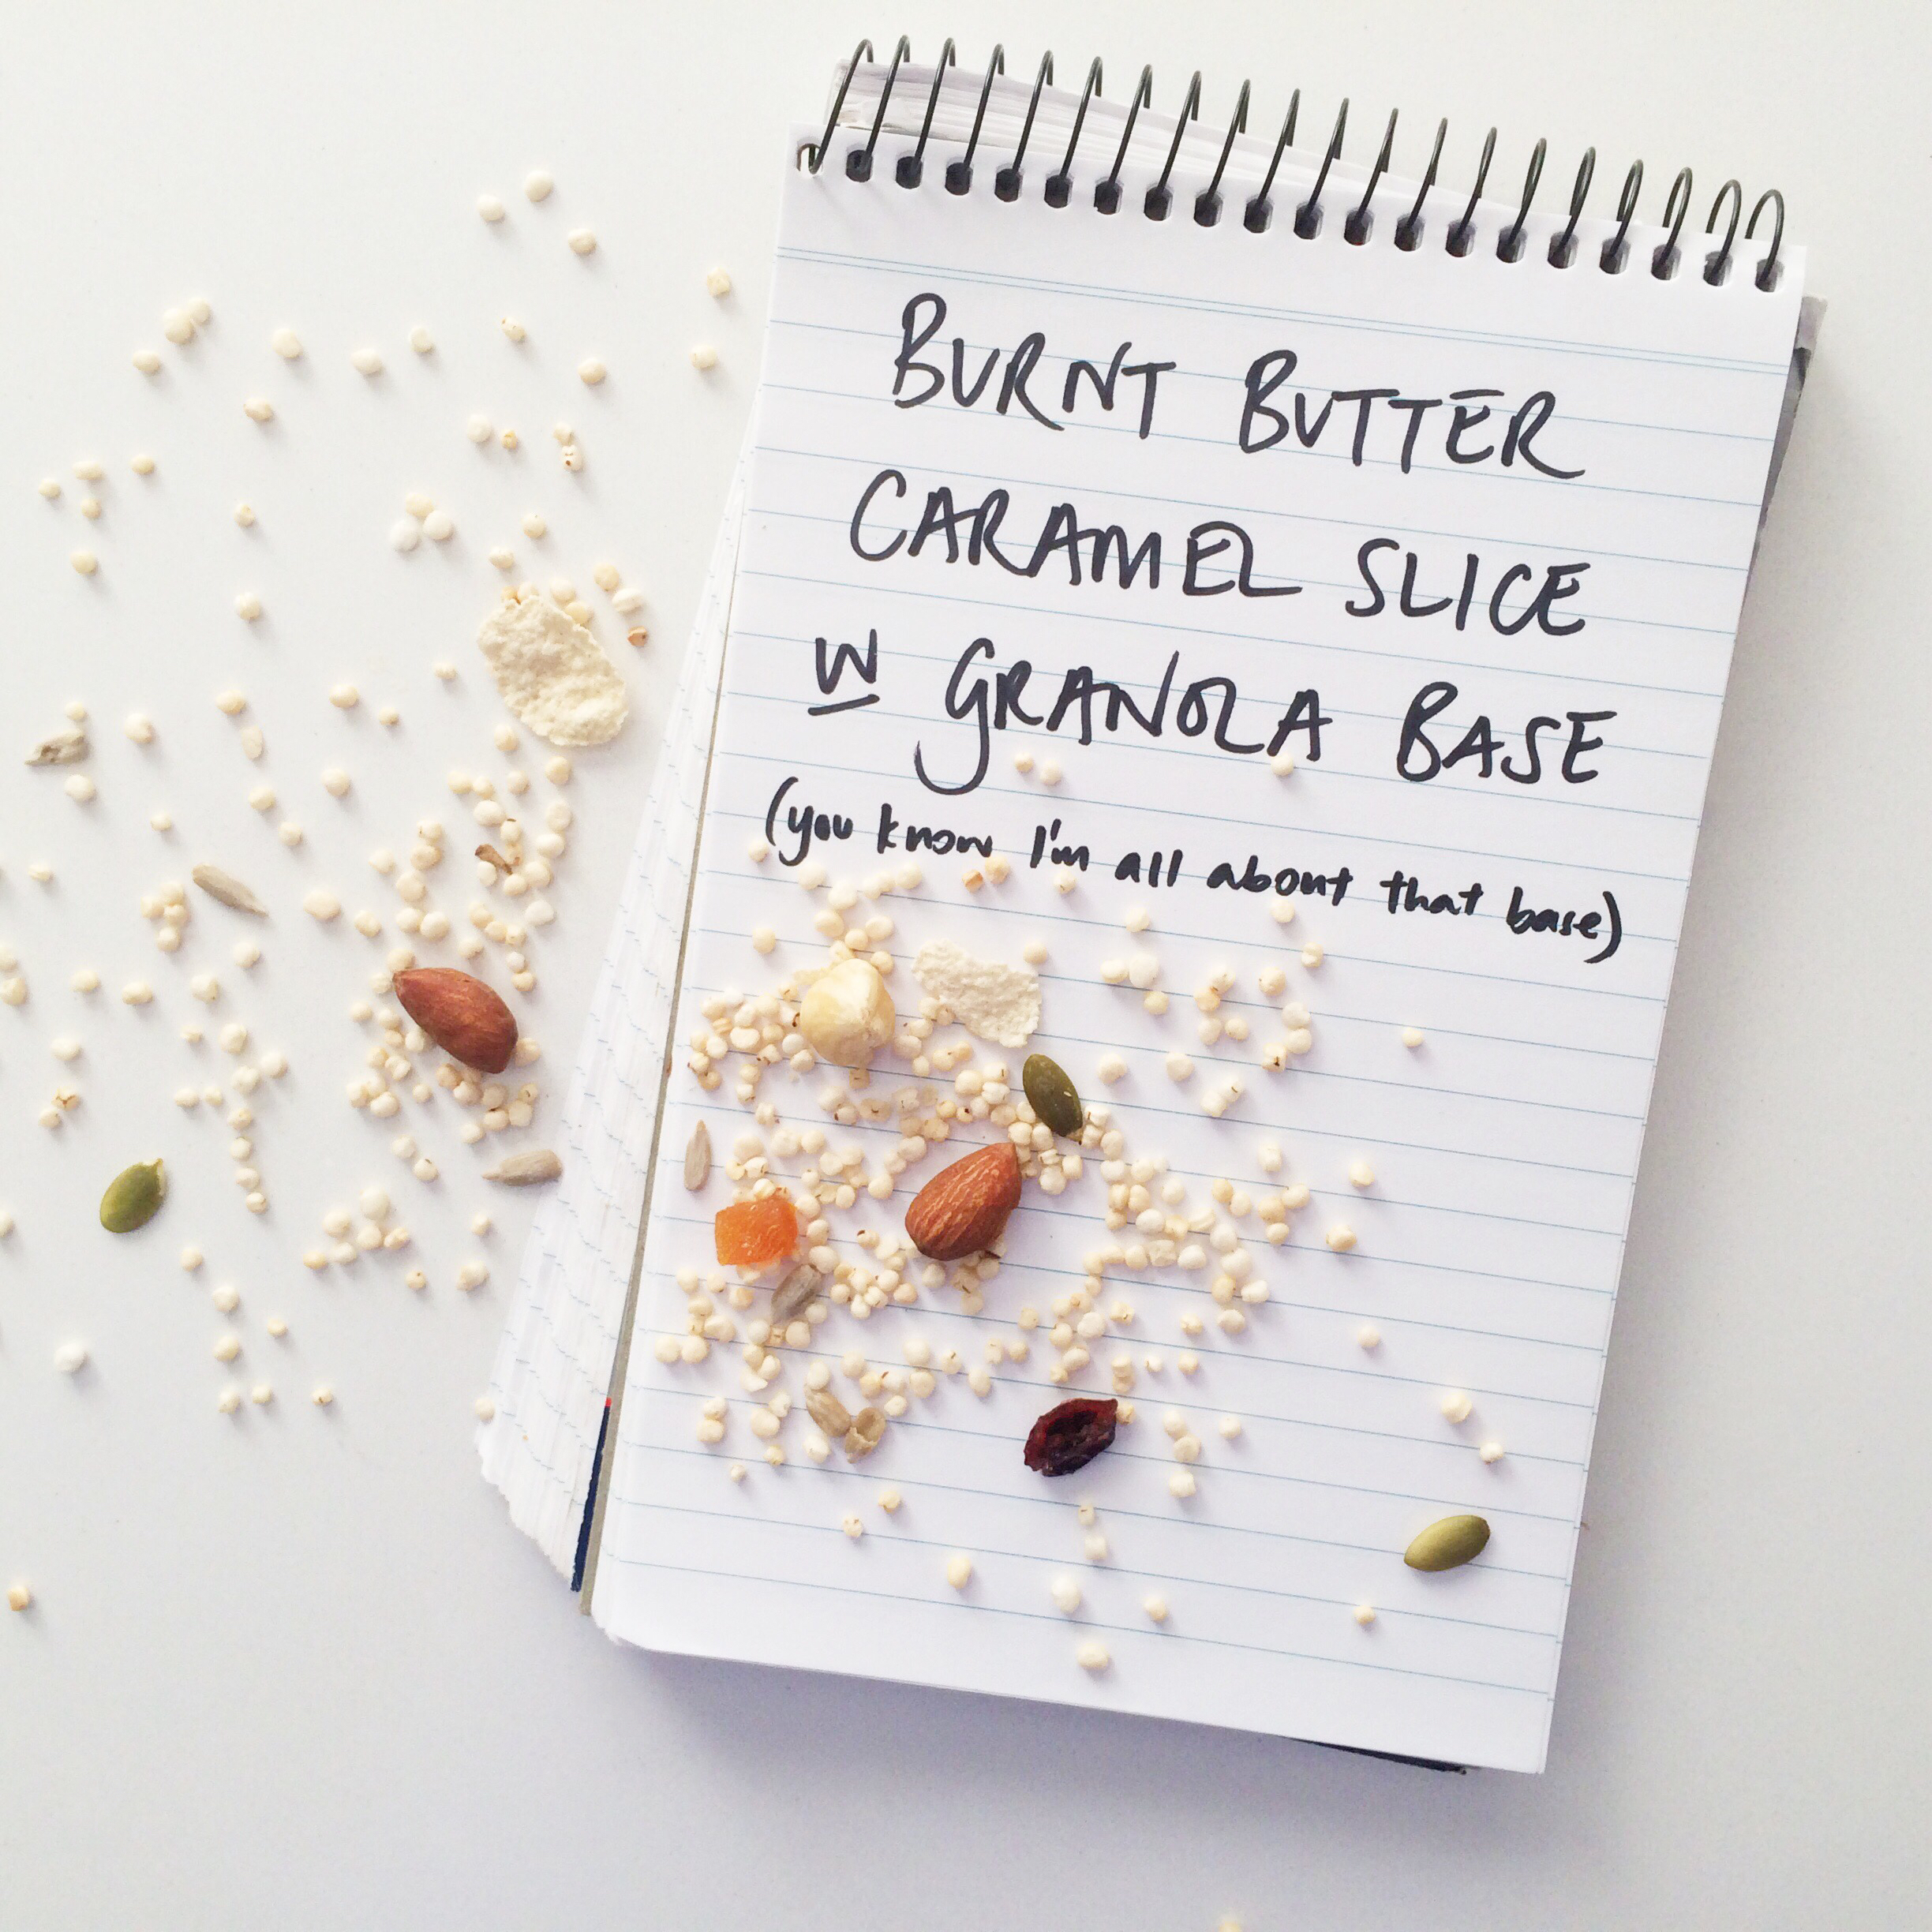 BURNT BUTTER
CARAMEL SLICE
W GRANOLA BASE
(you know I'm all about that base)